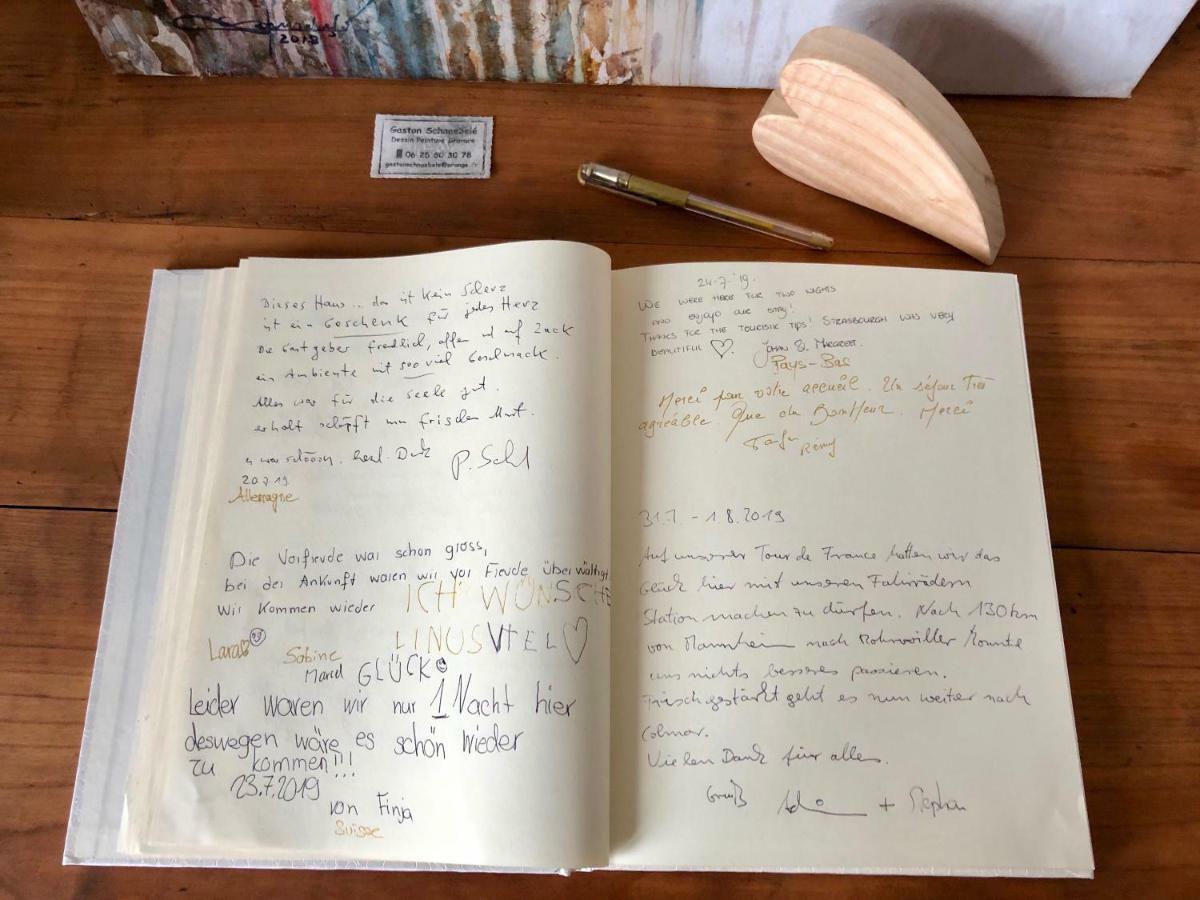 2018
Gaston Schnaebelé
Dessin Peinture Gravure
06 25 60 30 78
Dieses Haus... das ist kein Scherz
ist ein Geschenk für jedes Herz
Die Gastgeber freundlich, offen und auf Zack
ein Ambiente mit soo viel Geschmack.
Alles war für die Seele gut.
erholt schöpft man frischen Mut.
es war schöön. herzl. Dank
20.7.19
Allemagne
Die Vorfreude war schon gross,
bei der Ankunft waren wir vor Freude überwältigt
Wir kommen wieder
ICH WÜNSCHE
LINUS VIEL ♡
GLÜCK
Lara
Sabine
Marcel
Leider waren wir nur 1 Nacht hier
deswegen wäre es schön wieder
zu kommen!!!
23.7.2019
von Finja
Suisse
24-7-'19.
WE WERE HERE FOR TWO NIGHTS
AND ENJOYD OUR STAY!
THANKS FOR THE TOURISTIK TIPS! STRASBOURG WAS VERY
BEAUTIFUL ♡. JOHAN & MARGREET.
Pays-Bas
Merci pour votre accueil. Un séjour Très
agréable. Que du Bonheur. Merci
Rémy
31.7. - 1.8.2019
Auf unserer Tour de France hatten wir das
Glück hier mit unseren Fahrrädern
Station machen zu dürfen. Nach 130km
von Mannheim nach Rohrwiller konnte
uns nichts besseres passieren.
Frisch gestärkt geht es nun weiter nach
Colmar.
Vielen Dank für alles.
Gruß + Stephan